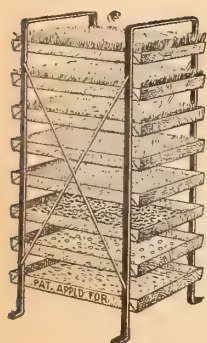 PAT. APPLD FOR